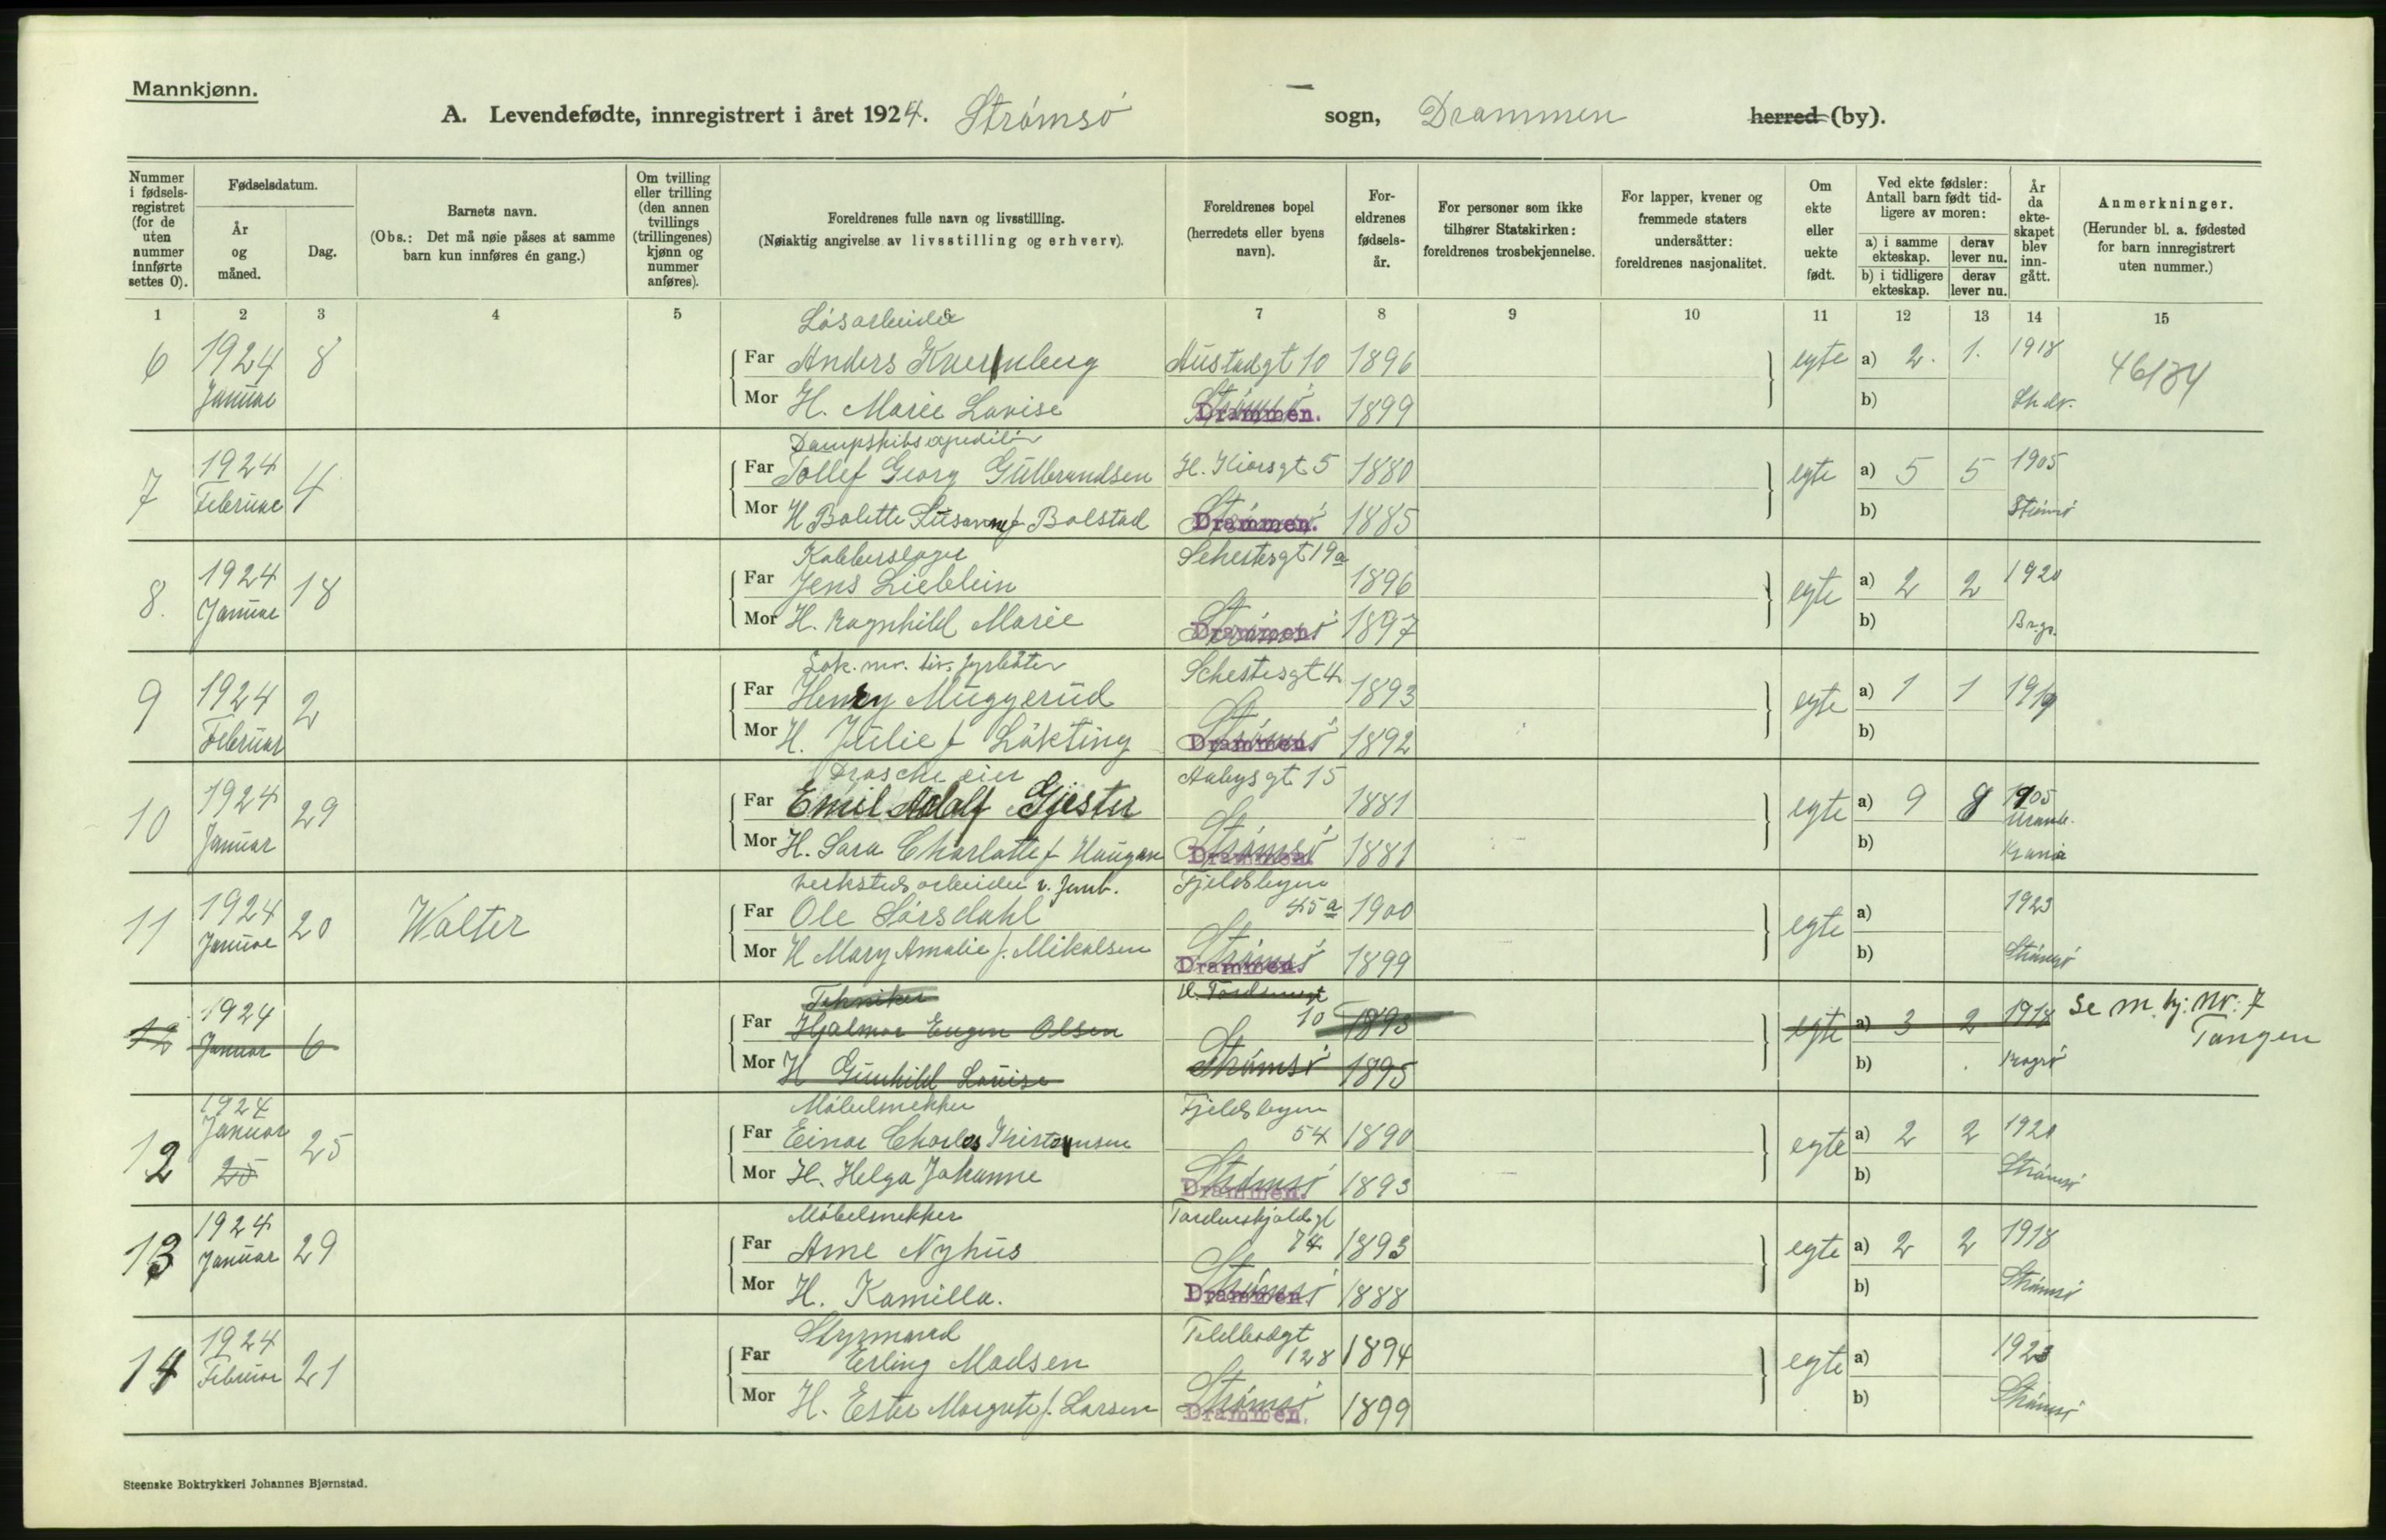 Mannkjønn.
A. Levendefødte, innregistrert i året 1924. Strømsø sogn, Drammen herred (by).
Nummer i fødselsregistret (for de uten nummer innførte settes 0).
Fødselsdatum.
År og måned.
Dag.
Barnets navn.
(Obs.: Det må nøie påses at samme barn kun innføres én gang.)
Om tvilling eller trilling (den annen tvillings (trillingenes) kjønn og nummer anføres).
Foreldrenes fulle navn og livsstilling.
(Nøiaktig angivelse av livsstilling og erhverv).
Foreldrenes bopel (herredets eller byens navn).
Foreldrenes fødselsår.
For personer som ikke tilhører Statskirken: foreldrenes trosbekjennelse.
For lapper, kvener og fremmede staters undersåtter: foreldrenes nasjonalitet.
Om ekte eller uekte født.
Ved ekte fødsler: Antall barn født tidligere av moren:
a) i samme ekteskap. derav lever nu.
b) i tidligere ekteskap. derav lever nu.
År da ekteskapet blev inngått.
Anmerkninger.
(Herunder bl. a. fødested for barn innregistrert uten nummer.)
1 2 3 4 5 6 7 8 9 10 11 12 13 14 15
Løsarbeider
6 1924 8 Far Anders Kvernberg Austadgt 10 1896 egte a) 2. 1. 1918
Januar Mor H. Marie Lovise Strømsø Drammen. 1899 b)
Dampskibsexpeditør
7 1924 4 Far Tollef Georg Gulbrandsen H. Kiærsgt 5 1880 egte a) 5 5 1905
Februar Mor H Bolette Susanne f Bolstad Strømsø Drammen. 1885 b) Strømsø
Kobberslager Sehestesgt 19a
8. 1924 18 Far Jens Lieblein 1896 egte a) 2 2 1920
Januar Mor H. Ragnhild Marie Strømsø Drammen. 1897 b) Brgn.
Sehestesgt 4
9 1924 2 Far Henry Muggerud 1893 egte a) 1 1 1919
Februar Mor H. Julie f Løkting Strømsø Drammen. 1892 b)
Drosche eier Aabysgt 15
10 1924 29 Far Emil Adolf Gjester 1881 egte a) 9 8 1905
Januar Mor H. Sara Charlotte f Haugan Strømsø Drammen. 1881 b)
Verkstedsarbeider v. Jernb. Fjeldsbyen
11 1924 20 Walter Far Ole Sørsdahl 45a 1900 egte a) 1923
Januar Mor H Mary Amalie f. Mikalsen Strømsø Drammen. 1899 b) Strømsø
Tekniker
12 1924 6 Far Hjalmar Eugen Olsen 10 1893 egte a) 3 2 1918 Se m. kj. nr. 7
Januar Mor H Gunhild Louise Strømsø 1895 b) Tangen
Møbelsnekker Fjeldsbyen
12 1924 25 Far Einar Charles Kristensen 54 1890 egte a) 2 2 1920
Januar 25 Mor H. Helga Johanne Strømsø Drammen. 1893 b) Strømsø
Møbelsnekker Tordenskjoldsgt
13 1924 29 Far Arne Nyhus 74 1893 egte a) 2 2 1918
Januar Mor H. Kamilla. Strømsø Drammen. 1888 b) Strømsø
Styrmand Toldbodgt
14 1924 21 Far Erling Madsen 128 1894 egte a) 1923
Februar Mor H. Ester Margrete f. Larsen Strømsø Drammen. 1899 b) Strømsø
Steenske Boktrykkeri Johannes Bjørnstad.